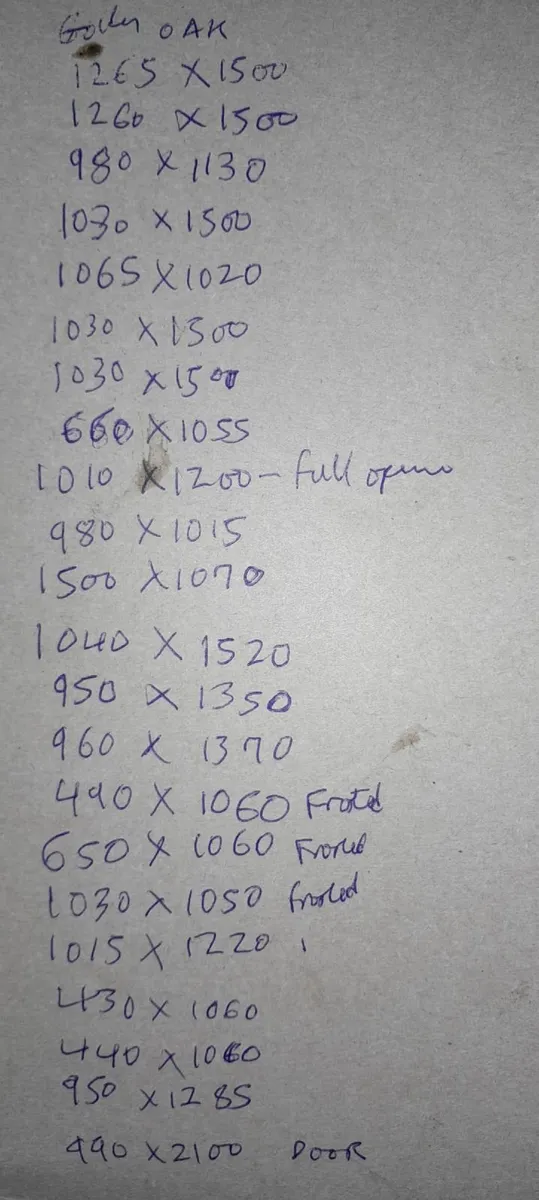 Golden OAK
1265 X 1500
1260 X 1500
980 X 1130
1030 X 1500
1065 X 1020
1030 X 1500
1030 X 1500
660 X 1055
1010 X 1200 - full
980 X 1015
1500 X 1070
1040 X 1520
950 X 1350
960 X 1370
490 X 1060 Frosted
650 X 1060 Frosted
1030 X 1050 frosted
1015 X 1220
430 X 1060
440 X 1060
950 X 1285
990 X 2100 DOOR